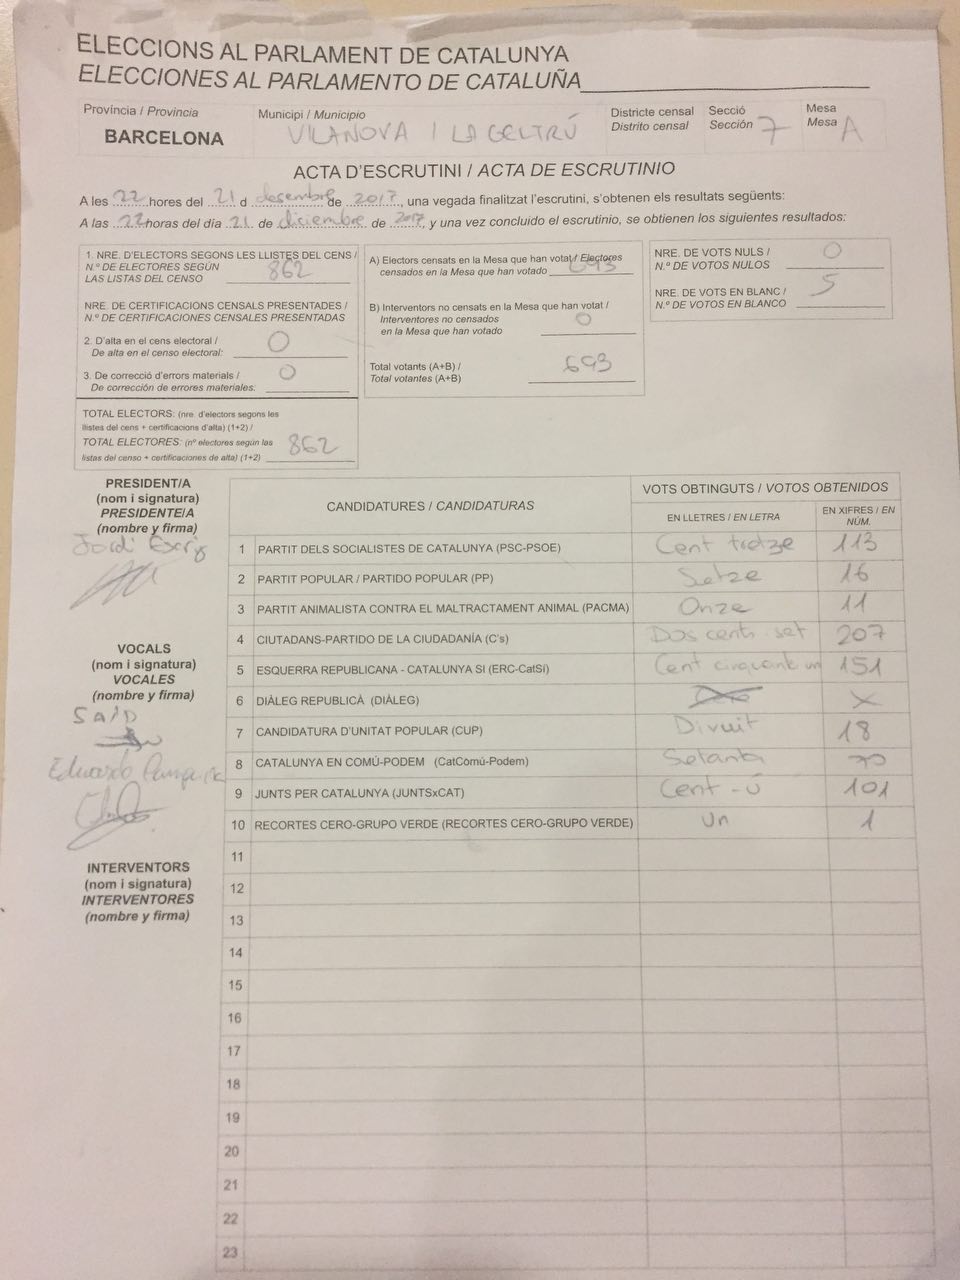 ELECCIONS AL PARLAMENT DE CATALUNYA
ELECCIONES AL PARLAMENTO DE CATALUÑA
Província / Provincia
BARCELONA
Municipi / Municipio
VILANOVA I LA GELTRÚ
Districte censal
Distrito censal
Secció
Sección 7
Mesa
Mesa A
ACTA D'ESCRUTINI / ACTA DE ESCRUTINIO
A les 22 hores del 21 d desembre de 2017, una vegada finalitzat l'escrutini, s'obtenen els resultats següents:
A las 22 horas del día 21 de diciembre de 2017, y una vez concluido el escrutinio, se obtienen los siguientes resultados:
1. NRE. D'ELECTORS SEGONS LES LLISTES DEL CENS /
N.º DE ELECTORES SEGÚN
LAS LISTAS DEL CENSO 862
NRE. DE CERTIFICACIONS CENSALS PRESENTADES /
N.º DE CERTIFICACIONES CENSALES PRESENTADAS
2. D'alta en el cens electoral /
De alta en el censo electoral: 0
3. De correcció d'errors materials /
De corrección de errores materiales: 0
TOTAL ELECTORS: (nre. d'electors segons les
llistes del cens + certificacions d'alta) (1+2) /
TOTAL ELECTORES: (nº electores según las
listas del censo + certificaciones de alta) (1+2) 862
A) Electors censats en la Mesa que han votat / Electores
censados en la Mesa que han votado 693
B) Interventors no censats en la Mesa que han votat /
Interventores no censados
en la Mesa que han votado 0
Total votants (A+B) /
Total votantes (A+B) 693
NRE. DE VOTS NULS /
N.º DE VOTOS NULOS 0
NRE. DE VOTS EN BLANC /
N.º DE VOTOS EN BLANCO 5
PRESIDENT/A
(nom i signatura)
PRESIDENTE/A
(nombre y firma)
Jordi
VOCALS
(nom i signatura)
VOCALES
(nombre y firma)
SAID
Eduardo
INTERVENTORS
(nom i signatura)
INTERVENTORES
(nombre y firma)
CANDIDATURES / CANDIDATURAS
VOTS OBTINGUTS / VOTOS OBTENIDOS
EN LLETRES / EN LETRA
EN XIFRES / EN
NÚM.
1 PARTIT DELS SOCIALISTES DE CATALUNYA (PSC-PSOE) Cent tretze 113
2 PARTIT POPULAR / PARTIDO POPULAR (PP) Setze 16
3 PARTIT ANIMALISTA CONTRA EL MALTRACTAMENT ANIMAL (PACMA) Onze 11
4 CIUTADANS-PARTIDO DE LA CIUDADANÍA (C's) Dos cents set 207
5 ESQUERRA REPUBLICANA - CATALUNYA SI (ERC-CatSí) Cent cinquanta un 151
6 DIÀLEG REPUBLICÀ (DIÀLEG) X
7 CANDIDATURA D'UNITAT POPULAR (CUP) Divuit 18
8 CATALUNYA EN COMÚ-PODEM (CatComú-Podem) Setanta 70
9 JUNTS PER CATALUNYA (JUNTSxCAT) Cent - ú 101
10 RECORTES CERO-GRUPO VERDE (RECORTES CERO-GRUPO VERDE) Un 1
11
12
13
14
15
16
17
18
19
20
21
22
23